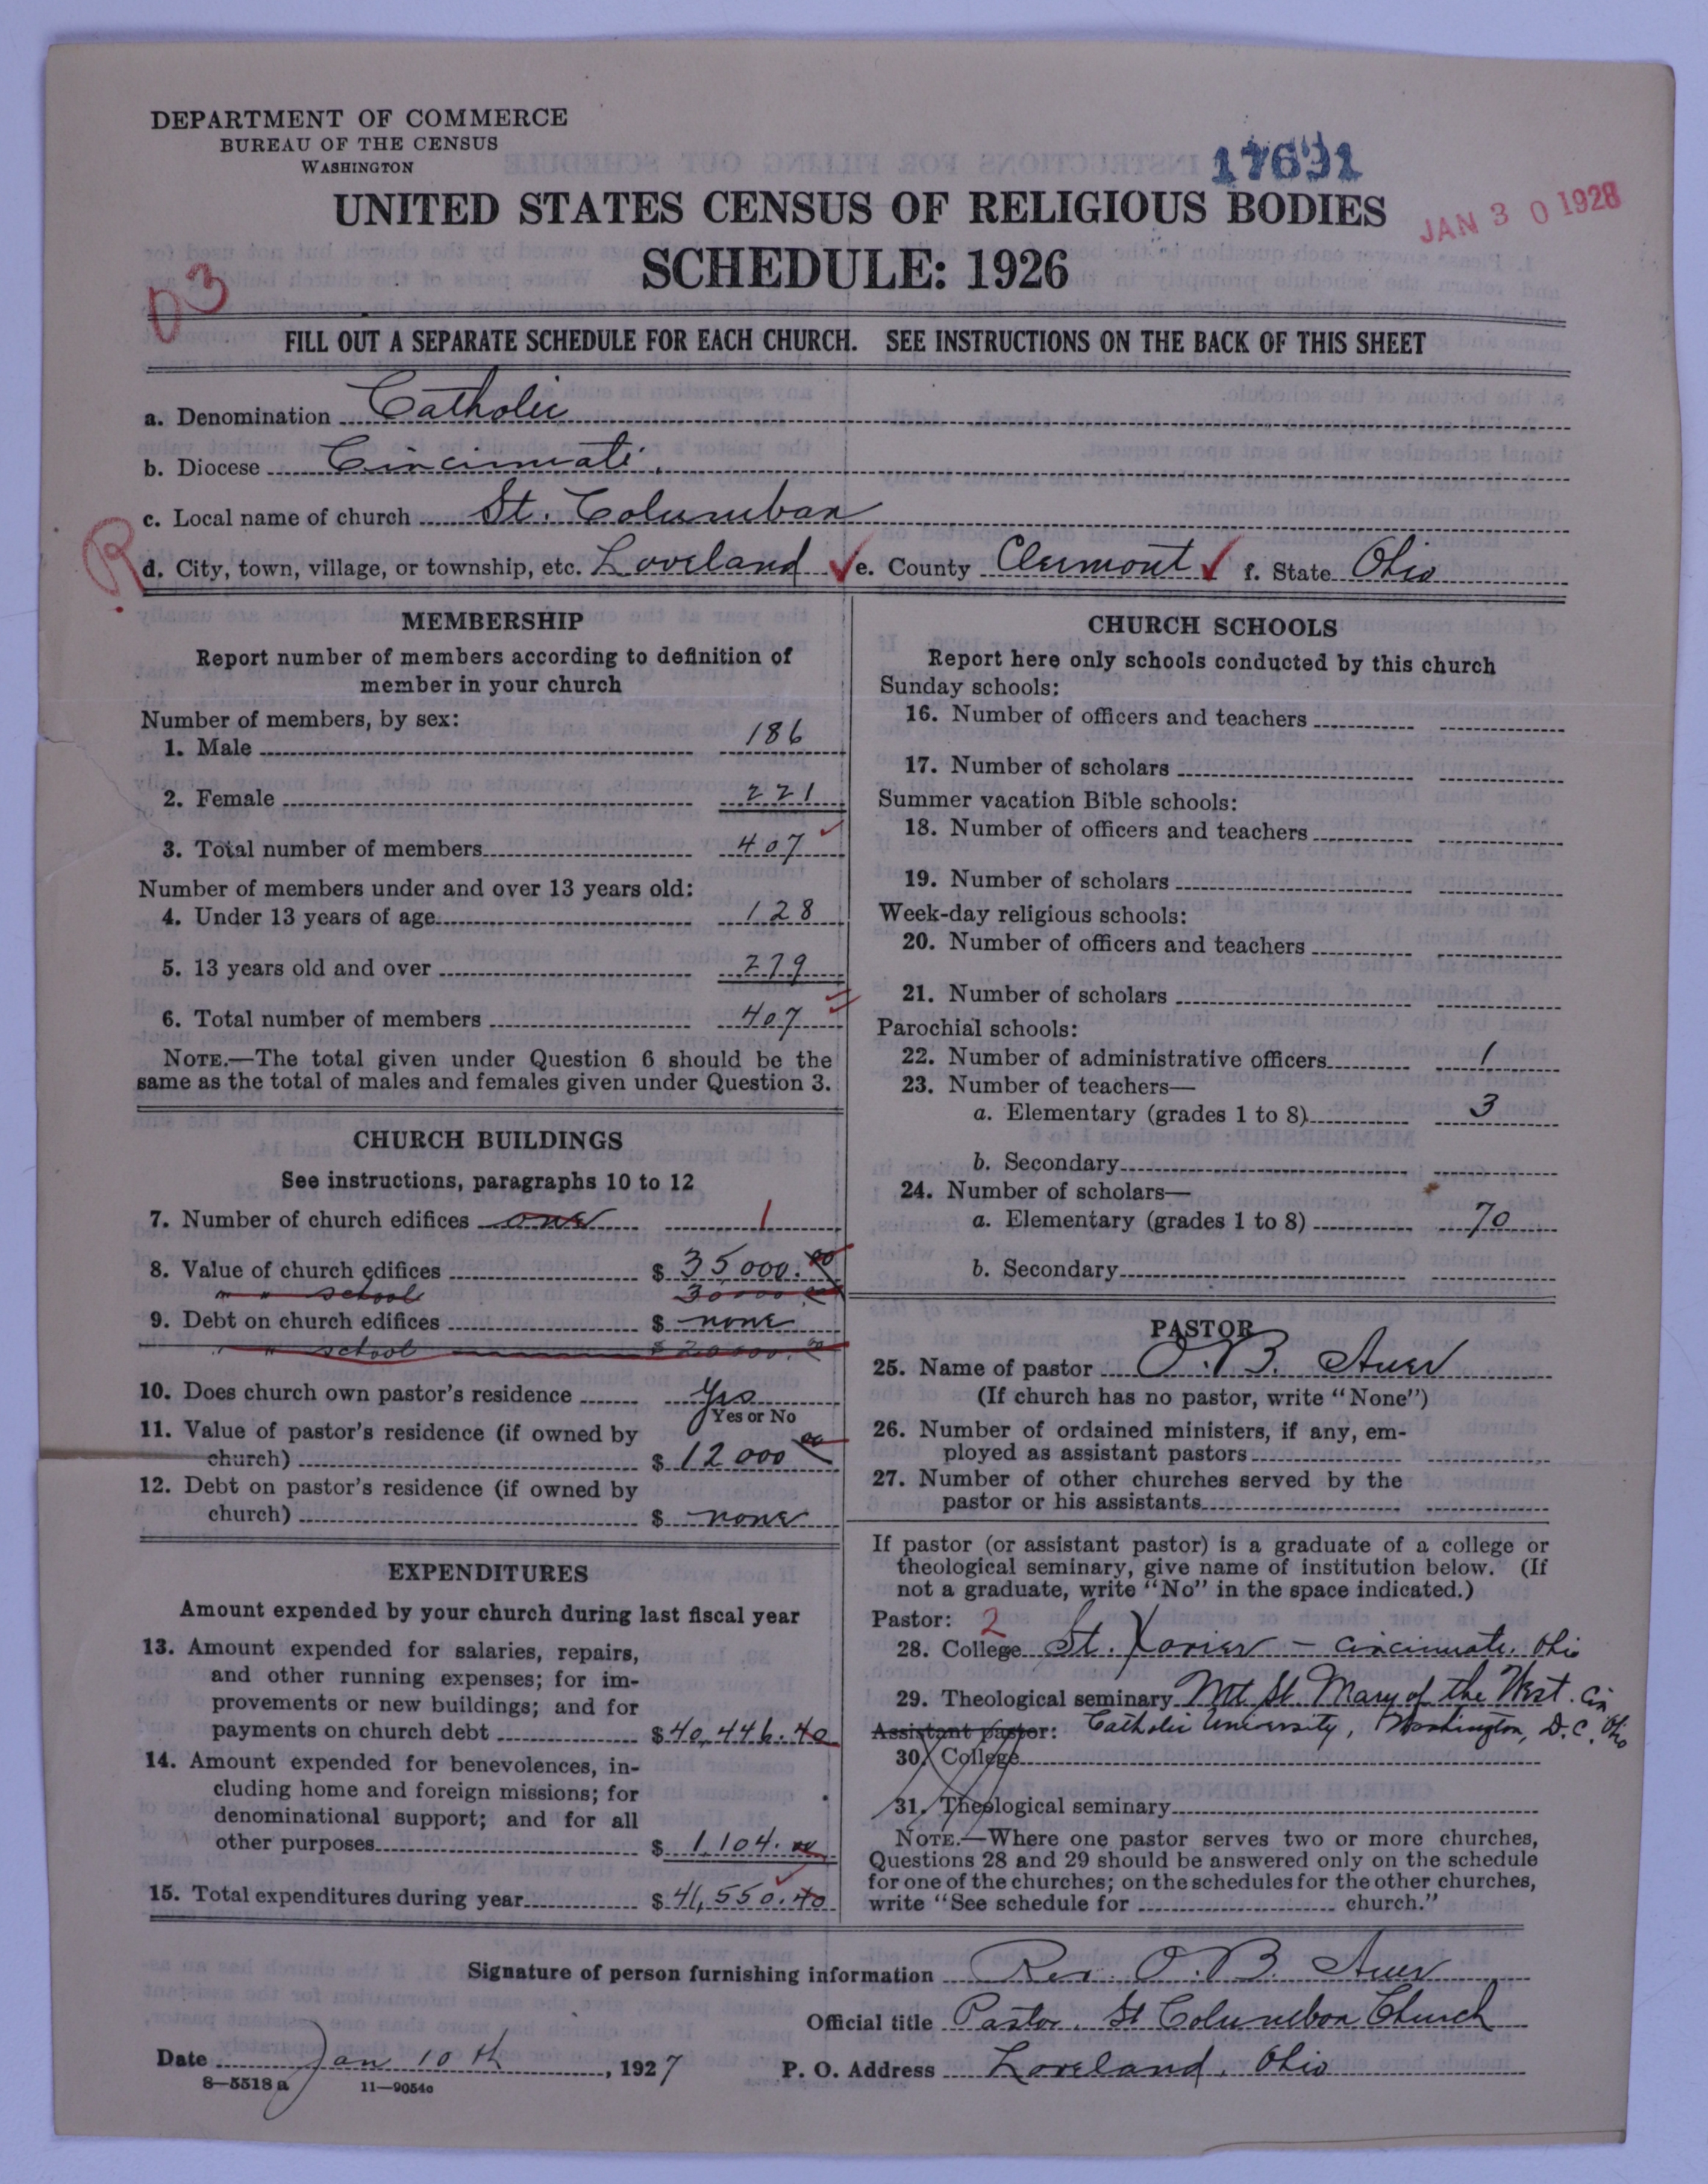 DEPARTMENT OF COMMERCE
BUREAU OF THE CENSUS
WASHINGTON
17691
UNITED STATES CENSUS OF RELIGIOUS BODIES
JAN 30 1928
SCHEDULE: 1926
03
FILL OUT A SEPARATE SCHEDULE FOR EACH CHURCH. SEE INSTRUCTIONS ON THE BACK OF THIS SHEET
a. Denomination Catholic
b. Diocese Cincinnati.
c. Local name of church St. Columban
R
d. City, town, village, or township, etc. Loveland e. County Clermont f. State Ohio
MEMBERSHIP
Report number of members according to definition of
member in your church
Number of members, by sex:
1. Male 186
2. Female 221
3. Total number of members 407
Number of members under and over 13 years old:
4. Under 13 years of age 128
5. 13 years old and over 279
6. Total number of members 407
NOTE.—The total given under Question 6 should be the
same as the total of males and females given under Question 3.
CHURCH BUILDINGS
See instructions, paragraphs 10 to 12
7. Number of church edifices one 1
8. Value of church edifices $ 35000.00
" " school 30,000.00
9. Debt on church edifices $ none
" " school $ 20000.00
10. Does church own pastor's residence Yes
Yes or No
11. Value of pastor's residence (if owned by
church) $ 12000 00
12. Debt on pastor's residence (if owned by
church) $ none
EXPENDITURES
Amount expended by your church during last fiscal year
13. Amount expended for salaries, repairs,
and other running expenses; for im-
provements or new buildings; and for
payments on church debt $ 40,446.40
14. Amount expended for benevolences, in-
cluding home and foreign missions; for
denominational support; and for all
other purposes $ 1,104.00
15. Total expenditures during year $ 41,550.40
CHURCH SCHOOLS
Report here only schools conducted by this church
Sunday schools:
16. Number of officers and teachers
17. Number of scholars
Summer vacation Bible schools:
18. Number of officers and teachers
19. Number of scholars
Week-day religious schools:
20. Number of officers and teachers
21. Number of scholars
Parochial schools:
22. Number of administrative officers 1
23. Number of teachers—
a. Elementary (grades 1 to 8) 3
b. Secondary
24. Number of scholars—
a. Elementary (grades 1 to 8) 70
b. Secondary
PASTOR
25. Name of pastor O. B. Auer
(If church has no pastor, write "None")
26. Number of ordained ministers, if any, em-
ployed as assistant pastors
27. Number of other churches served by the
pastor or his assistants
If pastor (or assistant pastor) is a graduate of a college or
theological seminary, give name of institution below. (If
not a graduate, write "No" in the space indicated.)
Pastor: 2
28. College St. Xavier - Cincinnati, Ohio
29. Theological seminary Mt. St. Mary of the West. Cin Ohio
Assistant pastor: Catholic University, Washington, D.C.
30. College
31. Theological seminary
NOTE.—Where one pastor serves two or more churches,
Questions 28 and 29 should be answered only on the schedule
for one of the churches; on the schedules for the other churches,
write "See schedule for church."
Signature of person furnishing information Rev. O. B. Auer
Official title Pastor. St Columban Church
Date Jan 10th, 1927 P. O. Address Loveland, Ohio
8—5518a 11—9054c